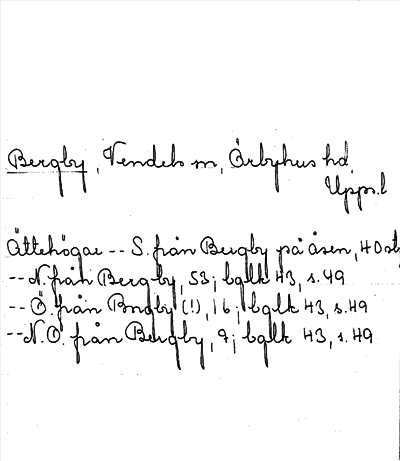 Bergby, Vendels sn, Örbyhus hd
Uppl.
Ättehögar -- S. från Bergby på åsen, 40 st;
-- N. från Bergby, 53; bglk 43, s. 49
-- Ö. från Bngby (!), 16; bglk 43, s. 49
-- N.O. från Bergby, 9; bglk 43, s. 49